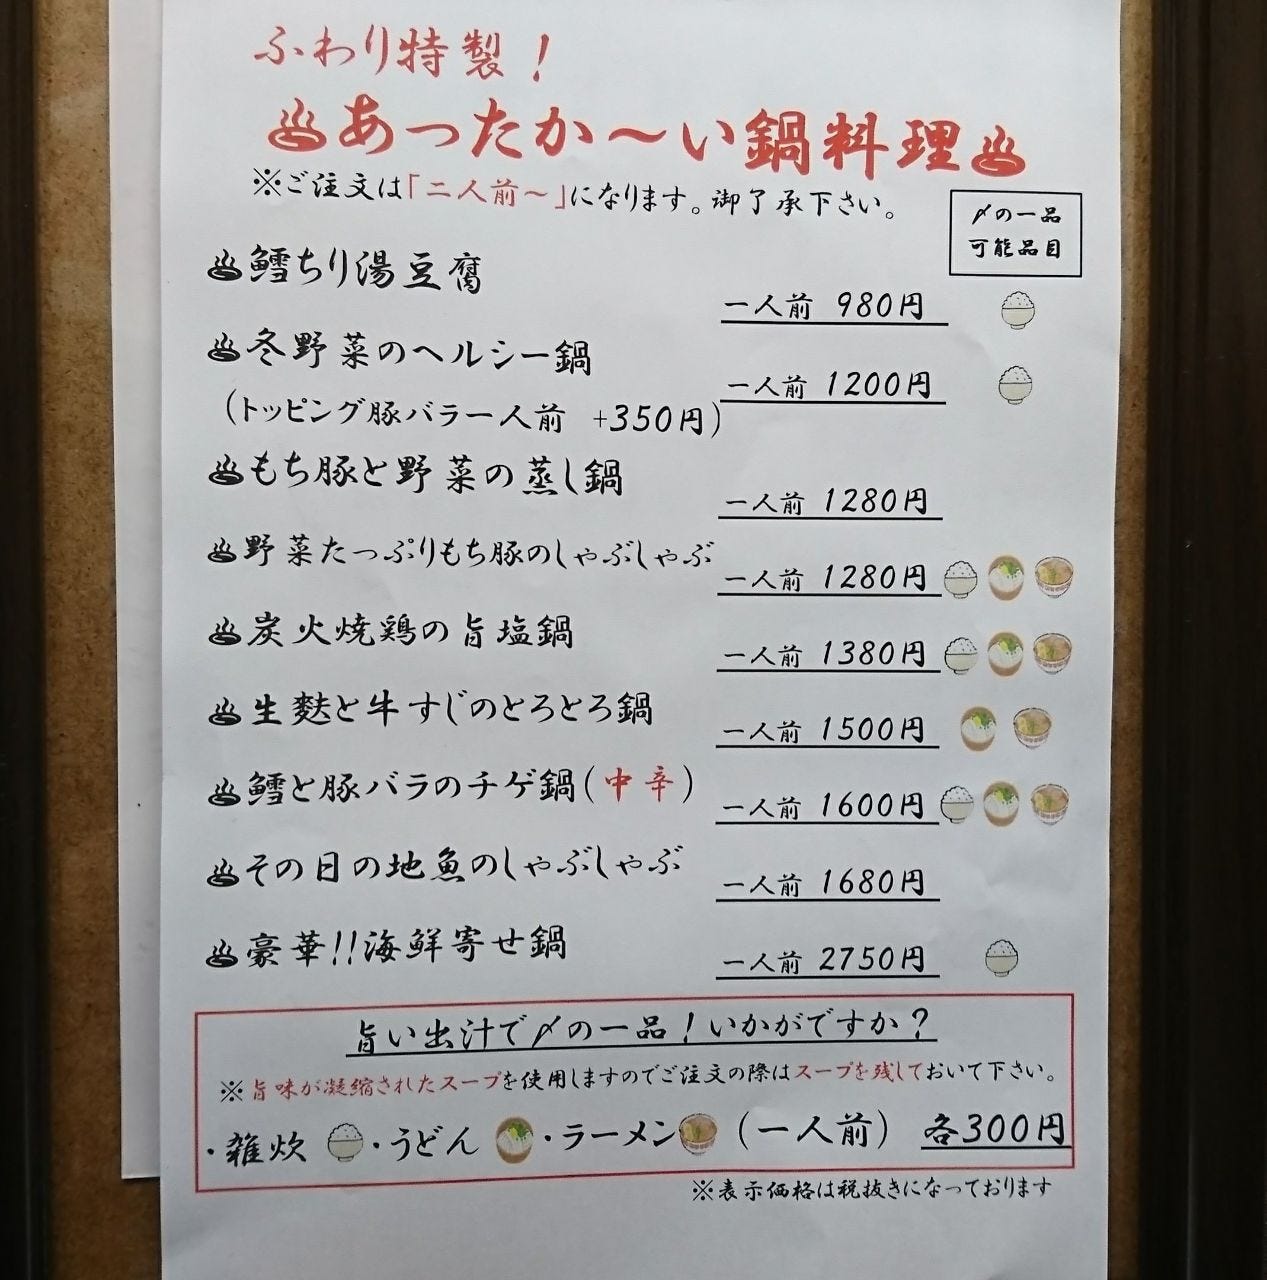 ふわり特製！
♨あったか～い鍋料理♨
※ご注文は「二人前～」になります。御了承下さい。
〆の一品
可能品目
♨鱈ちり湯豆腐
一人前 980円
♨冬野菜のヘルシー鍋
一人前 1200円
（トッピング豚バラ一人前 +350円）
♨もち豚と野菜の蒸し鍋
一人前 1280円
♨野菜たっぷりもち豚のしゃぶしゃぶ
一人前 1280円
♨炭火焼鶏の旨塩鍋
一人前 1380円
♨生麩と牛すじのとろとろ鍋
一人前 1500円
♨鱈と豚バラのチゲ鍋（中辛）
一人前 1600円
♨その日の地魚のしゃぶしゃぶ
一人前 1680円
♨豪華!!海鮮寄せ鍋
一人前 2750円
旨い出汁で〆の一品！いかがですか？
※旨味が凝縮されたスープを使用しますのでご注文の際はスープを残しておいて下さい。
・雑炊 ・うどん ・ラーメン （一人前） 各300円
※表示価格は税抜きになっております